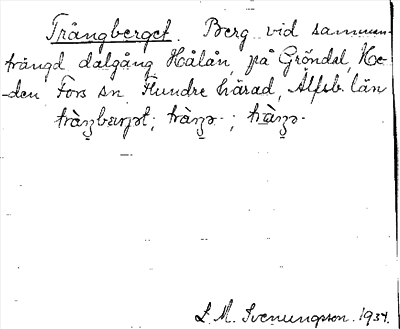 Trångberget. Berg vid samman-
trängd dalgång Hålån, på Gröndal, He-
-den Fors sn Flundre härad, Älfsb. län
L. M. Svenungsson. 1934.